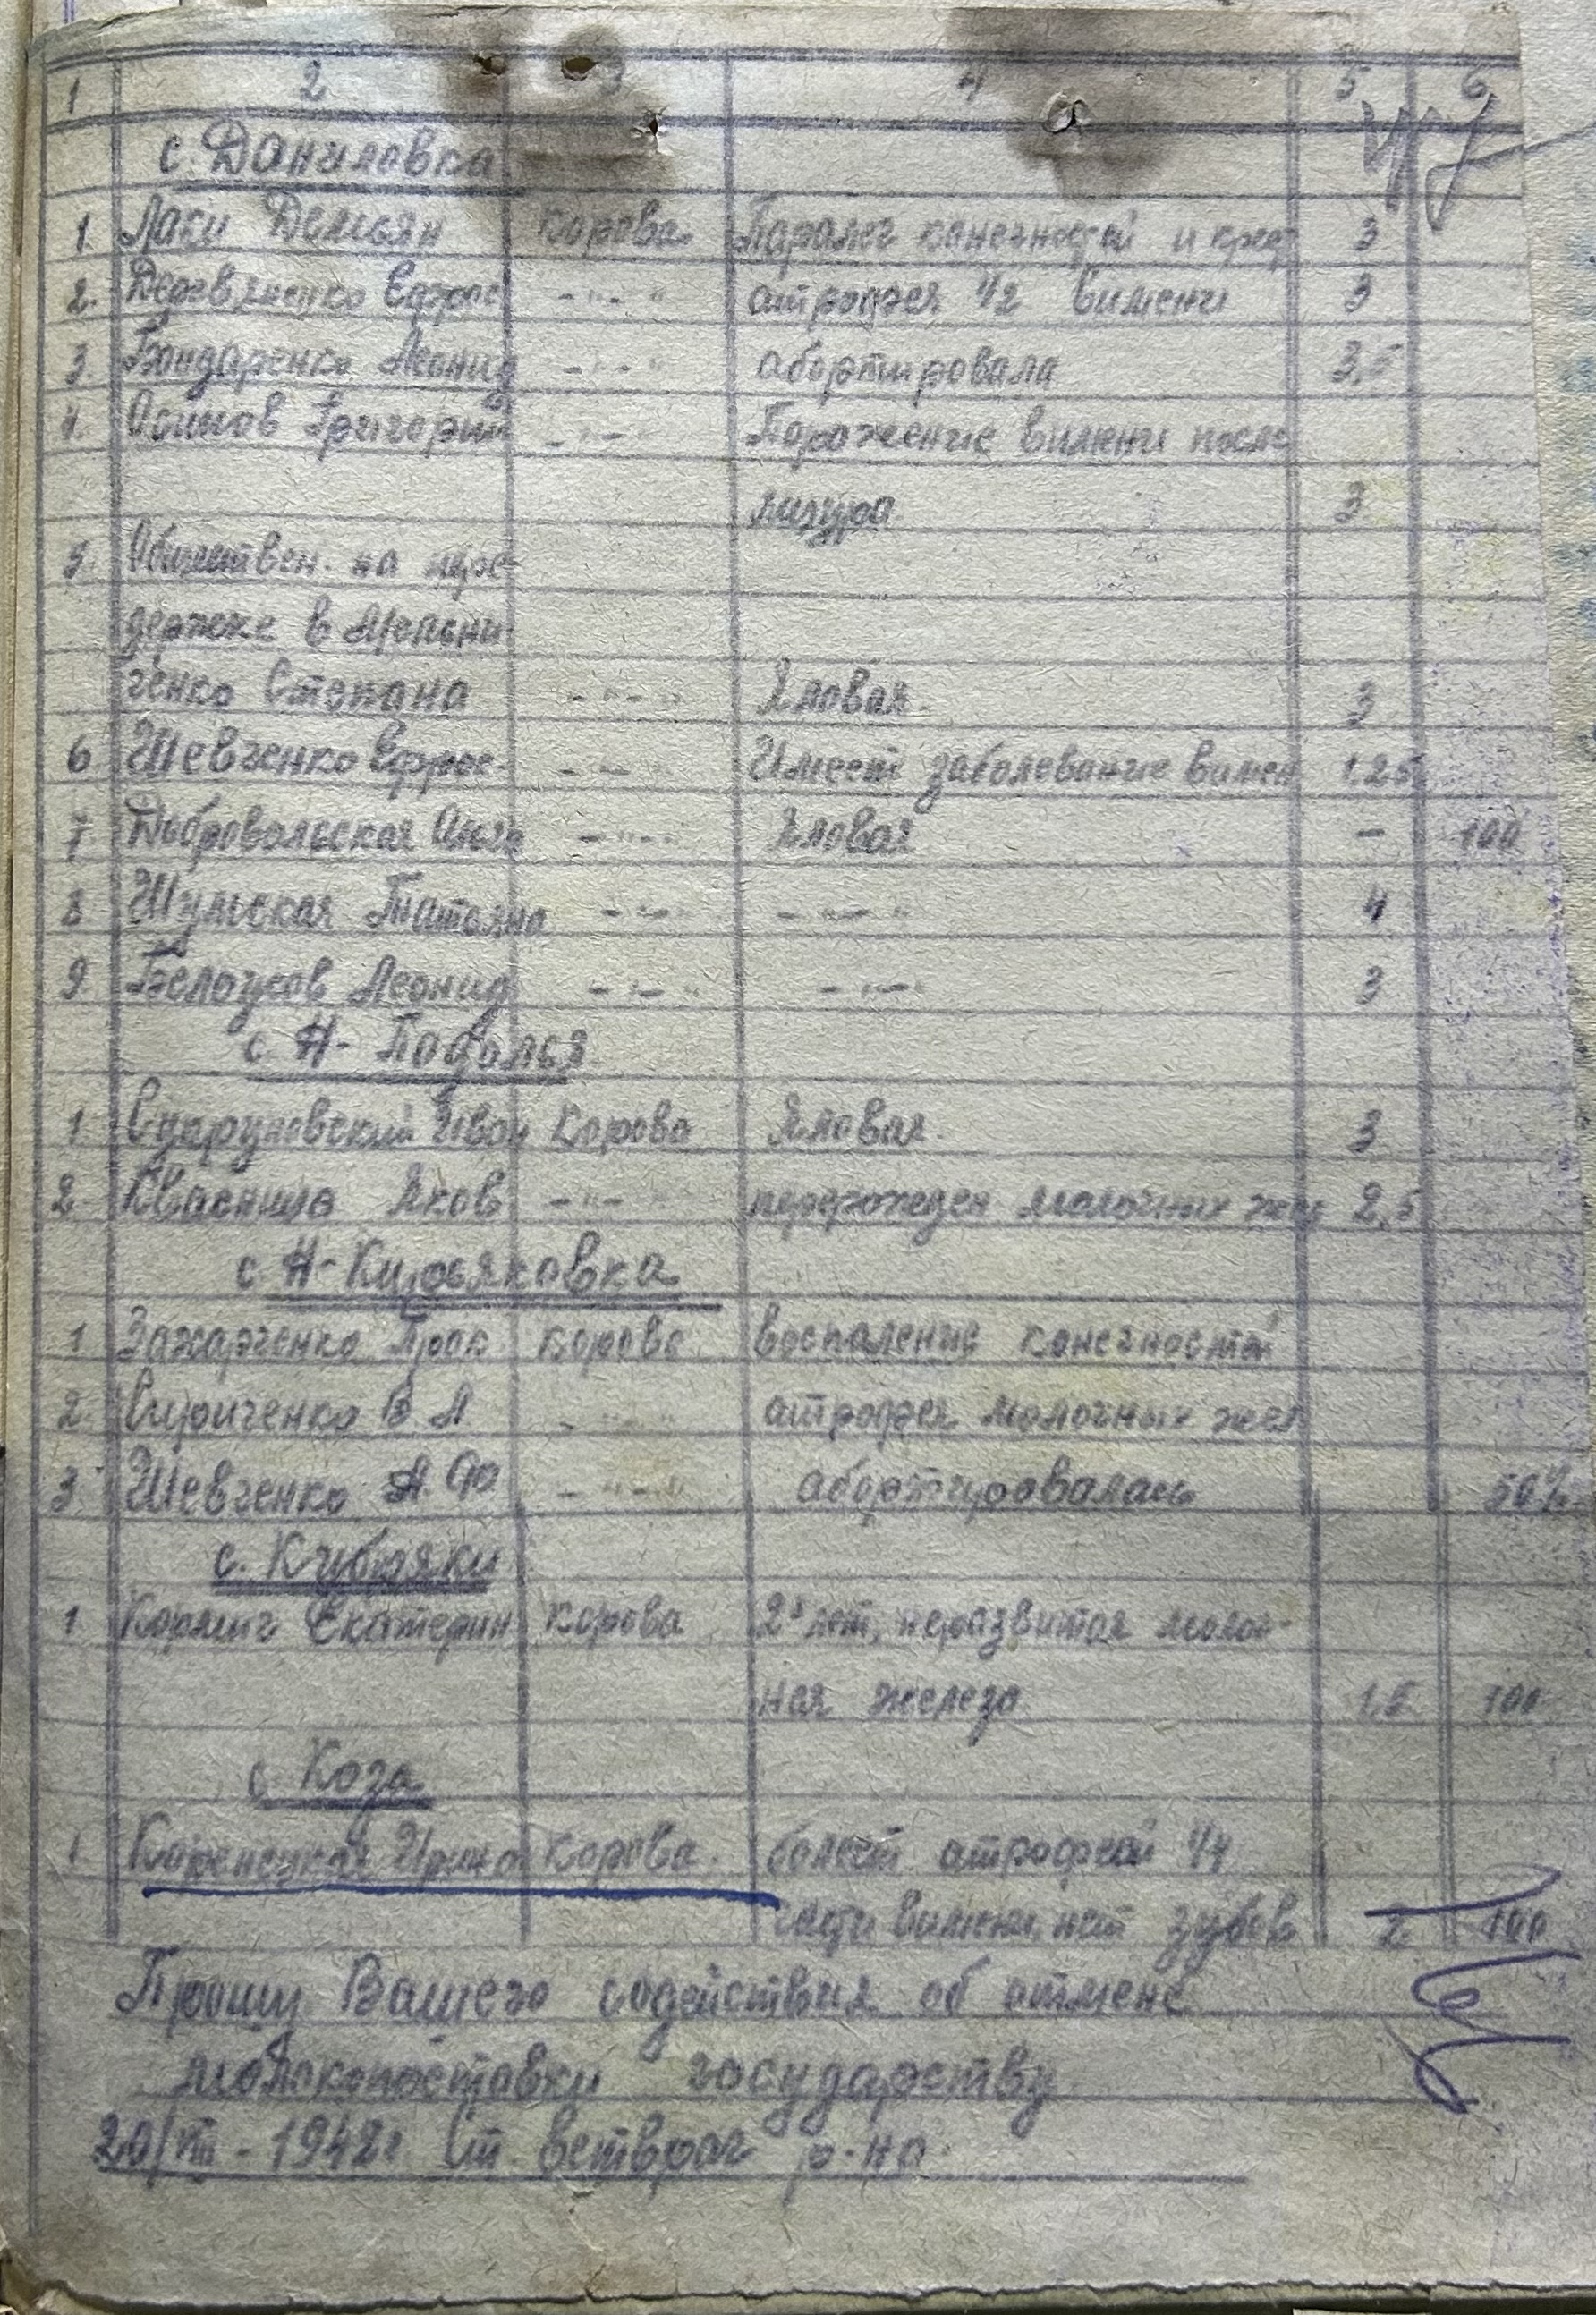 1 2 3 4 5 6
с. Даниловка
1. Лаки Демьян корова Паралег конечностей и 3
2. Ефрос -"-" атрофея 1/2 вимени 3
3. Бондаренко Леонид -"-" абортировала 3,5
4. Осипов Григорий -"-" Поражение вимени после
3
5. Обществен. на
держке в Мельни-
ченко Степана -"-" Яловая. 3
6 Шевченко Ефрос- -"-" Имеет заболевание вимен 1.25
7 Добровольская Анна -"-" Яловая - 100
8 Шульская Татьяна -"- -"-" 4
9. Белоусов Леонид -"-" -"-" 3
с. Н- Подолья
1 Иван Корова Яловая. 3
2 Квасница Яков -"-" перерожден молочных жел 2,5
с. Н-Кирьяковка
1 Захарченко Прок. корова воспаление конечностей
2. Кириченко В. А -"-" атрофея молочных жел
3 Шевченко А. Ф -"-" абортировалась 50%
с. Кубряки
1 Екатерин корова 2х лет, неразвитая молоч-
ная железа 1,5 100
с. Коза
1. Ирина Корова. болеет атрофеей 1/4
части вимени, нет зубов 2 100
Прошу Вашего содействия об отмене
молокопоставки государству
20/VIII - 1942г Ст. ветврач р-на